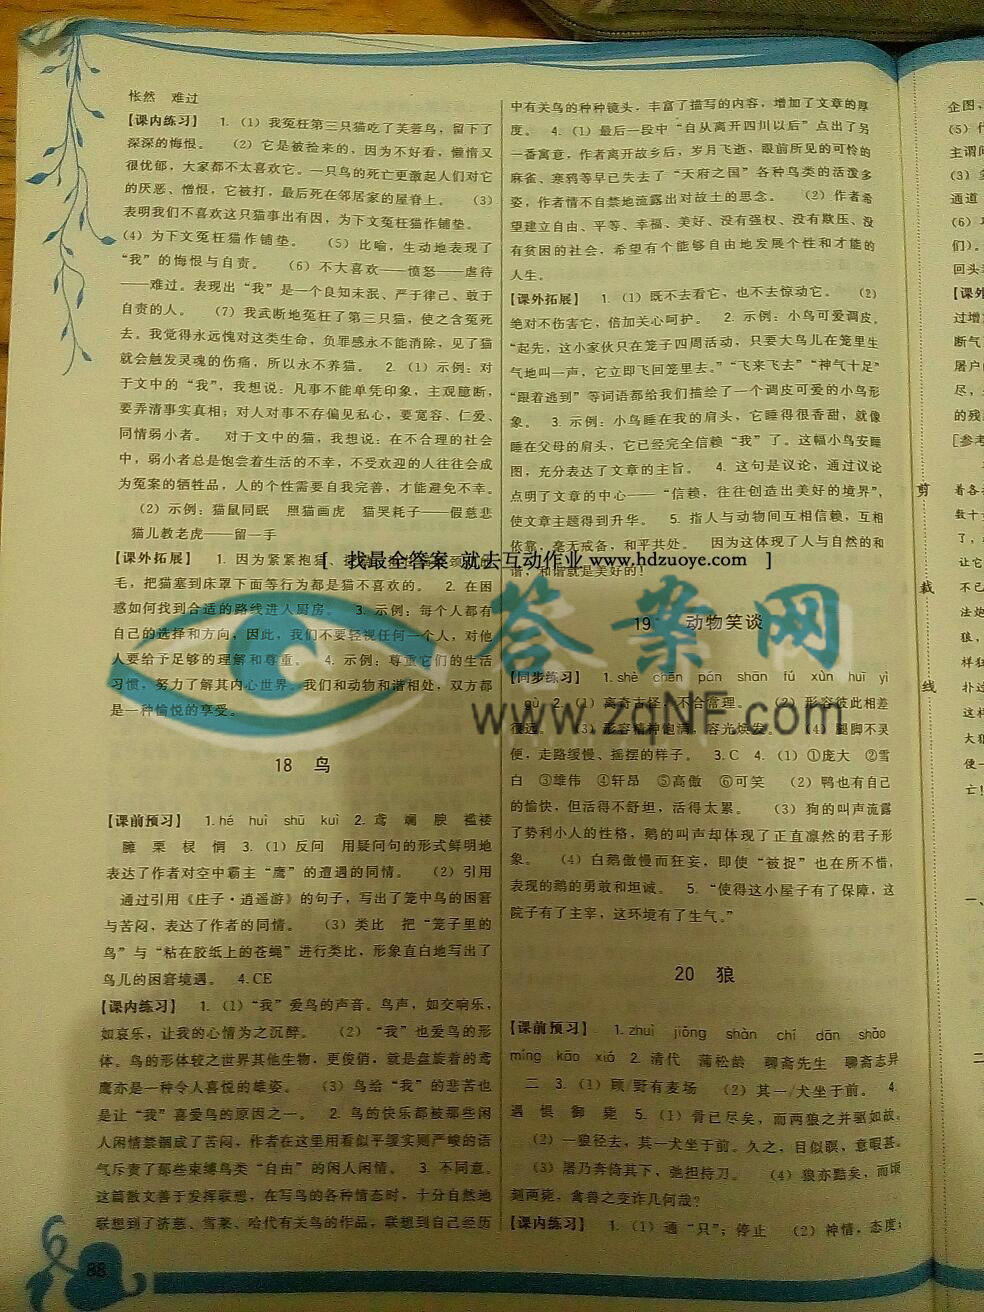 怅然　难过
【课内练习】　1.（1）我冤枉第三只猫吃了芙蓉鸟，留下了
深深的悔恨。　（2）它是被捡来的，因为不好看，懒惰又
很忧郁，大家都不太喜欢它。一只鸟的死亡更激起人们对它
的厌恶、憎恨，它被打，最后死在邻居家的屋脊上。　（3）
表明我们不喜欢这只猫事出有因，为下文冤枉猫作铺垫。
（4）为下文冤枉猫作铺垫。　（5）比喻，生动地表现了
“我”的悔恨与自责。　（6）不大喜欢——愤怒——虐待
——难过。表现出“我”是一个良知未泯、严于律己、敢于
自责的人。　（7）我武断地冤枉了第三只猫，使之含冤死
去。我觉得永远愧对这类生命，负罪感永不能消除，见了猫
就会触发灵魂的伤痛，所以永不养猫。　2.（1）示例：对
于文中的“我”，我想说：凡事不能单凭印象，主观臆断，
要弄清事实真相；对人对事不存偏见私心，要宽容、仁爱、
同情弱小者。　对于文中的猫，我想说：在不合理的社会
中，弱小者总是饱尝着生活的不幸，不受欢迎的人往往会成
为冤案的牺牲品，人的个性需要自我完善，才能避免不幸。
（2）示例：猫鼠同眠　照猫画虎　猫哭耗子——假慈悲
猫儿教老虎——留一手
【课外拓展】　1. 因为紧紧抱猫、
毛，把猫塞到床罩下面等行为都是猫不喜欢的。　2. 在困
惑如何找到合适的路线进入厨房。　3. 示例：每个人都有
自己的选择和方向，因此，我们不要轻视任何一个人，对他
人要给予足够的理解和尊重。　4. 示例：尊重它们的生活
习惯，努力了解其内心世界。我们和动物和谐相处，双方都
是一种愉悦的享受。
18　鸟
【课前预习】　1. hé　huì　shū　kuì　2. 鸢　斓　腴　褴褛
臃　栗　棂　悄　3.（1）反问　用疑问句的形式鲜明地
表达了作者对空中霸主“鹰”的遭遇的同情。　（2）引用
通过引用《庄子·逍遥游》的句子，写出了笼中鸟的困窘
与苦闷，表达了作者的同情。　（3）类比　把“笼子里的
鸟”与“粘在胶纸上的苍蝇”进行类比，形象直白地写出了
鸟儿的困窘境遇。　4.CE
【课内练习】　1.（1）“我”爱鸟的声音。鸟声，如交响乐，
如哀乐，让我的心情为之沉醉。　（2）“我”也爱鸟的形
体。鸟的形体较之世界其他生物，更俊俏，就是盘旋着的鸢
鹰亦是一种令人喜悦的雄姿。　（3）鸟给“我”的悲苦也
是让“我”喜爱鸟的原因之一。　2. 鸟的快乐都被那些闲
人闲情禁锢成了苦闷，作者在这里用看似平缓实则严峻的语
气斥责了那些束缚鸟类“自由”的闲人闲情。　3. 不同意。
这篇散文善于发挥联想，在写鸟的各种情态时，十分自然地
联想到了济慈、雪莱、哈代有关鸟的作品，联想到自己经历
88
中有关鸟的种种镜头，丰富了描写的内容，增加了文章的厚
度。　4.（1）最后一段中“自从离开四川以后”点出了另
一番寓意，作者离开故乡后，岁月飞逝，眼前所见的可怜的
麻雀、寒鸦等早已失去了“天府之国”各种鸟类的活泼多
姿，作者情不自禁地流露出对故土的思念。　（2）作者希
望建立自由、平等、幸福、美好、没有强权、没有欺压、没
有贫困的社会，希望有个能够自由地发展个性和才能的
人生。
【课外拓展】　1.（1）既不去看它，也不去惊动它。　（2）
绝对不伤害它，倍加关心呵护。　2. 示例：小鸟可爱调皮。
“起先，这小家伙只在笼子四周活动，只要大鸟儿在笼里生
气地叫一声，它立即飞回笼里去。”“飞来飞去”“神气十足”
“跟着逃到”等词语都给我们描绘了一个调皮可爱的小鸟形
象。　3. 示例：小鸟睡在我的肩头，它睡得很香甜，就像
睡在父母的肩头，它已经完全信赖“我”了。这幅小鸟安睡
图，充分表达了文章的主旨。　4. 这句是议论，通过议论
点明了文章的中心——“信赖，往往创造出美好的境界”，
使文章主题得到升华。　5. 指人与动物间互相信赖，互相
依靠，毫无戒备，和平共处。　因为这体现了人与自然的和
谐，和谐就是美好的！
[　找最全答案　就去互动作业 www.hdzuoye.com　]
19　动物笑谈
答案网
www.zqNF.com
【同步练习】　1. shè　chēn　pán　shān　fú　xùn　huī　yì
gù　2.（1）离奇古怪，不合常理。　（2）形容彼此相差
很远。　（3）形容精神饱满，容光焕发。　（4）腿脚不灵
便，走路缓慢、摇摆的样子。　3. C　4.（1）①庞大　②雪
白　③雄伟　④轩昂　⑤高傲　⑥可笑　（2）鸭也有自己
的愉快，但活得不舒坦，活得太累。　（3）狗的叫声流露
了势利小人的性格，鹅的叫声却体现了正直凛然的君子形
象。　（4）白鹅傲慢而狂妄，即使“被捉”也在所不惜，
表现的鹅的勇敢和坦诚。　5.“使得这小屋子有了保障，这
院子有了主宰，这环境有了生气。”
20　狼
【课前预习】　1. zhuì　jiǒng　shàn　chí　dān　shǎo
míng　kāo　xiá　2. 清代　蒲松龄　聊斋先生　聊斋志异
二　3.（1）顾/野有麦场　（2）其一/犬坐于前。　4.
遇　恨　御　毙　5.（1）骨已尽矣，而两狼之并驱如故。
（2）一狼径去，其一犬坐于前。久之，目似瞑，意暇甚。
（3）屠乃奔倚其下，弛担持刀。　（4）狼亦黠矣，而顷
刻两毙，禽兽之变诈几何哉？
【课内练习】　1.（1）通“只”；停止　（2）神情，态度；
剪
裁
线